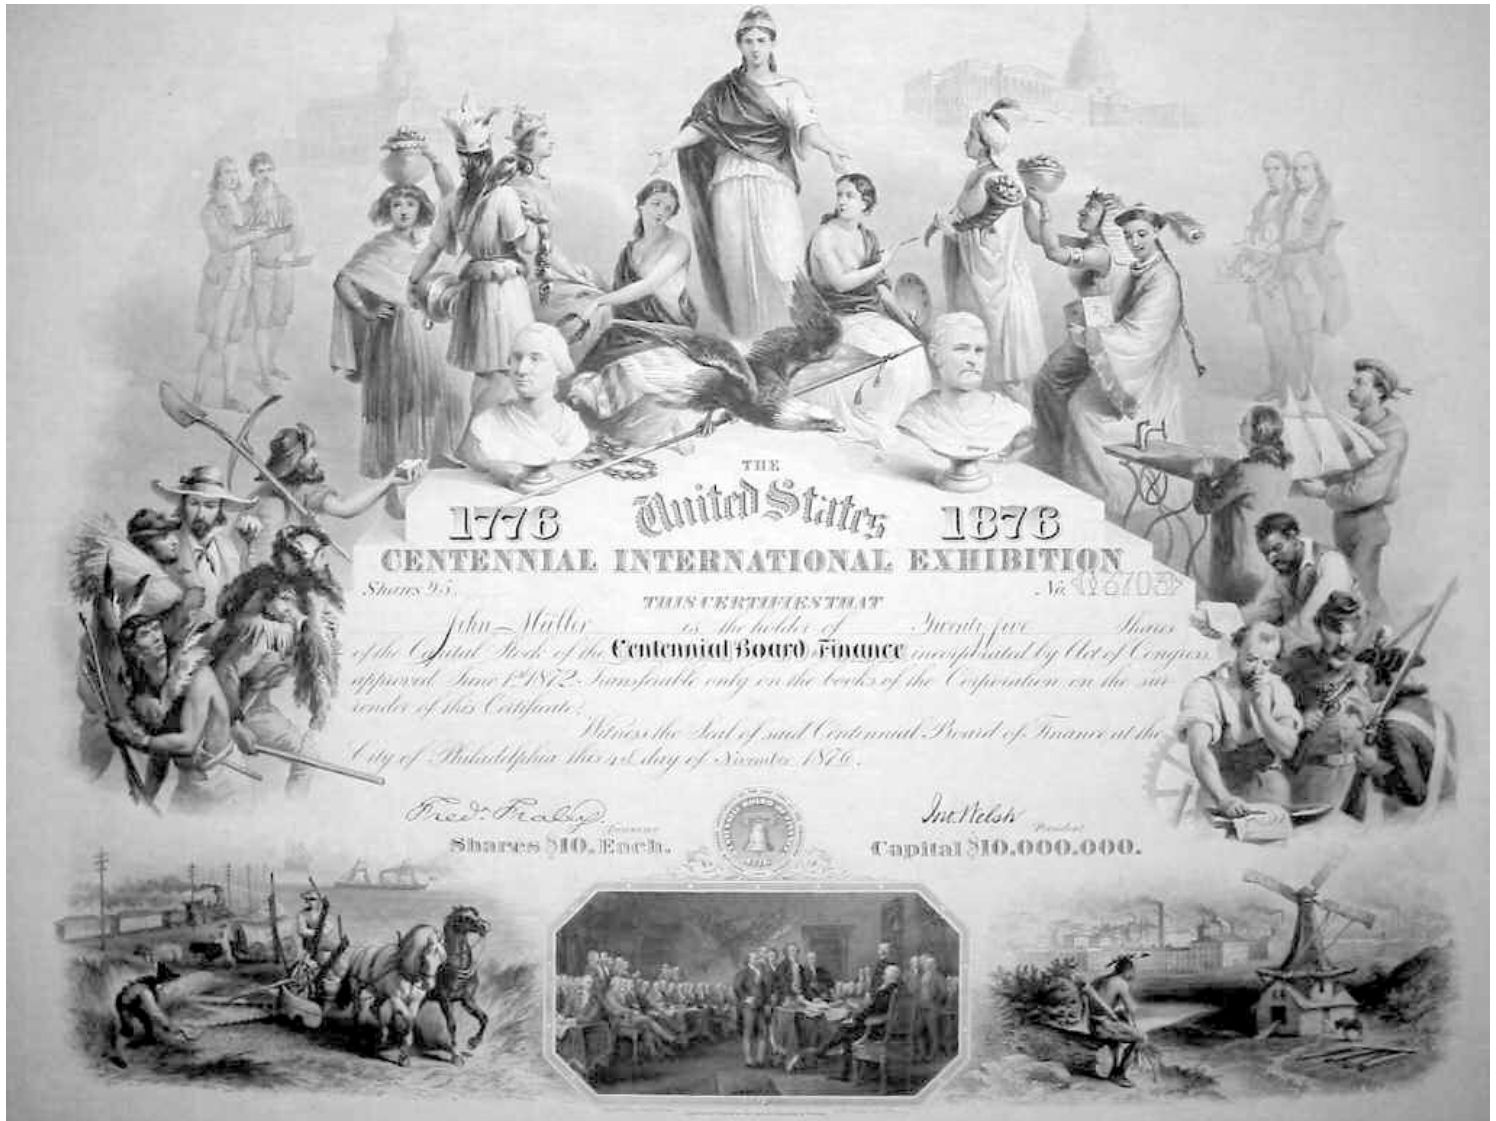 THE
United States
1776 1876
CENTENNIAL INTERNATIONAL EXHIBITION
Shares 25. No.
THIS CERTIFIES THAT
John Müller is the holder of Twenty five Shares
of the Capital Stock of the Centennial Board of Finance incorporated by Act of Congress,
approved June 1st 1872. Transferable only on the books of the Corporation on the sur-
render of this Certificate.
Witness the Seal of said Centennial Board of Finance at the
City of Philadelphia this day of November 1876.
Fredk. Fraley Jno. Welsh
Treasurer President
Shares $10. Each. Capital $10.000.000.